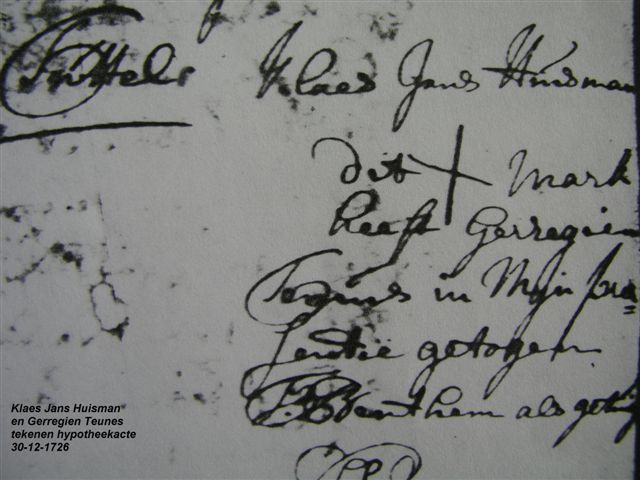 Klaes Jans Huisman
dit + Mark
heeft Gerregien
Teunes in Mijn præ=
sentie getogen
Benthem als getuig
Klaes Jans Huisman
en Gerregien Teunes
tekenen hypotheekacte
30-12-1726